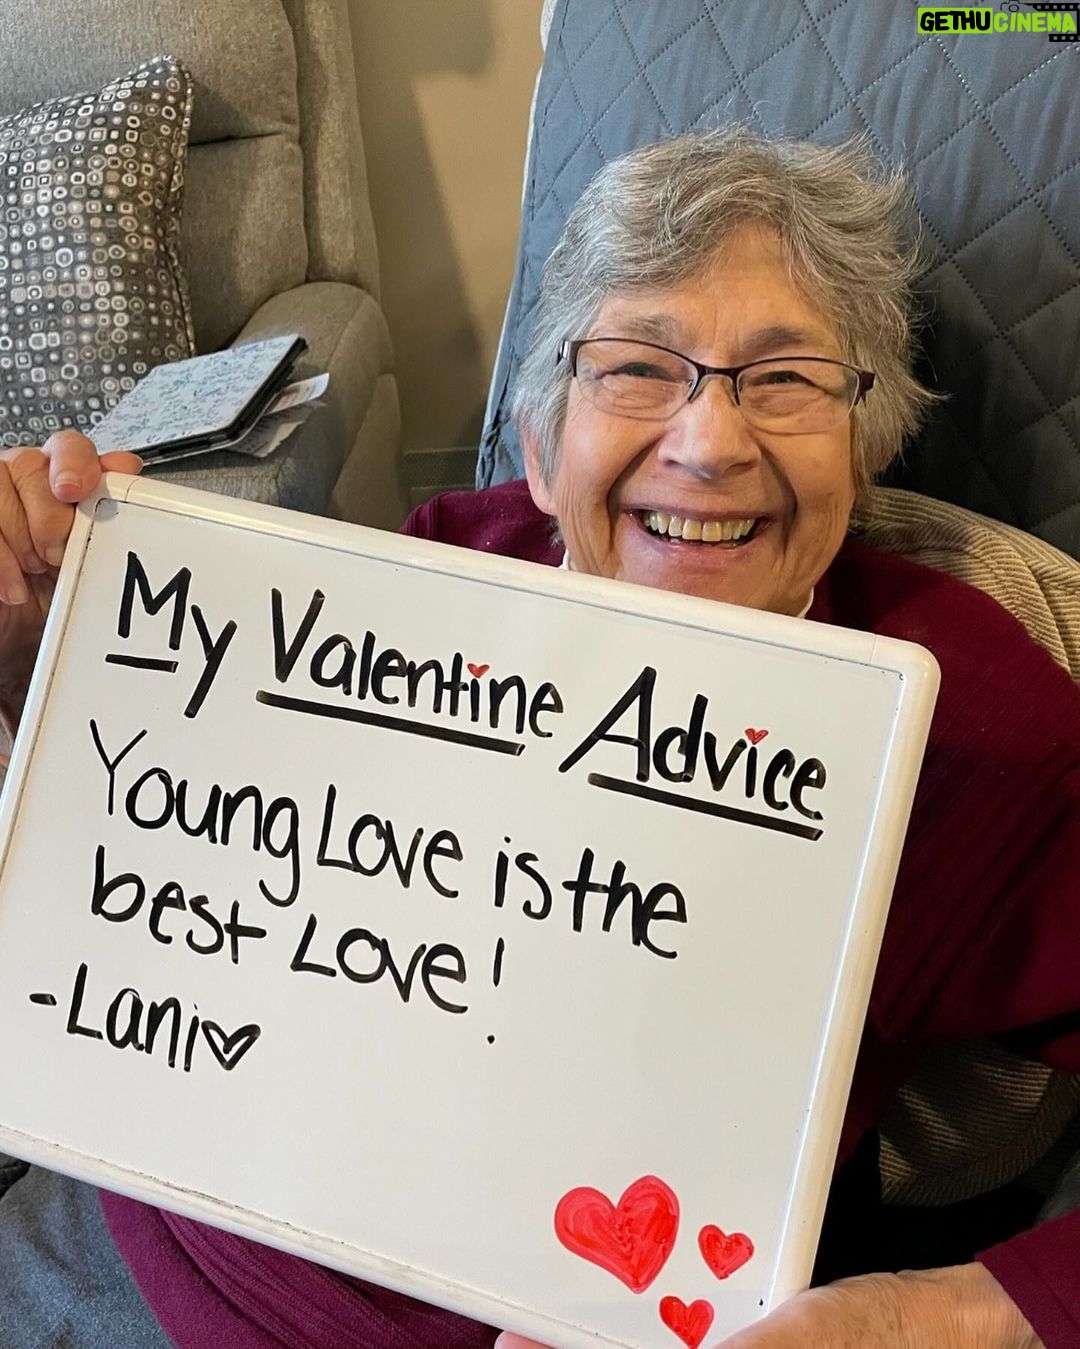 GETHUCINEMA
My Valentine Advice
Young Love is the
best Love!
-Lani♡